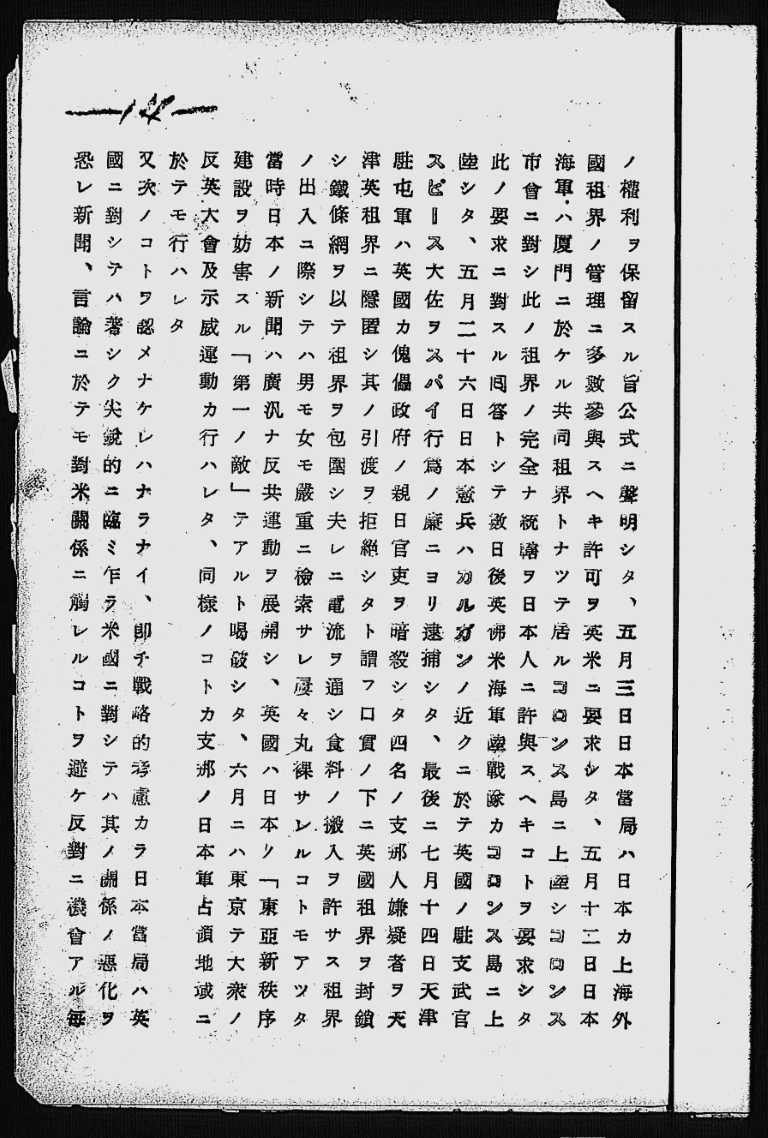 14
ノ權利ヲ保留スル旨公式ニ聲明シタ、五月三日日本當局ハ日本カ上海外
國租界ノ管理ニ多數參與スヘキ許可ヲ英米ニ要求シタ、五月十二日日本
海軍ハ厦門ニ於ケル共同租界トナツテ居ルコロンス島ニ上陸シコロンス
市會ニ對シ此ノ租界ノ完全ナ統轄ヲ日本人ニ許與スヘキコトヲ要求シタ
此ノ要求ニ對スル囘答トシテ數日後英佛米海軍陸戰隊カコロンス島ニ上
陸シタ、五月二十六日日本憲兵ハカルガンノ近クニ於テ英國ノ駐支武官
スピース大佐ヲスパイ行爲ノ廉ニヨリ逮捕シタ、最後ニ七月十四日天津
駐屯軍ハ英國カ傀儡政府ノ親日官吏ヲ暗殺シタ四名ノ支那人嫌疑者ヲ天
津英租界ニ隱匿シ其ノ引渡ヲ拒絶シタト謂フ口實ノ下ニ英國租界ヲ封鎖
シ鐵條網ヲ以テ租界ヲ包圍シ夫レニ電流ヲ通シ食料ノ搬入ヲ許サス租界
ノ出入ニ際シテハ男モ女モ嚴重ニ檢索サレ屡々丸裸サレルコトモアツタ
當時日本ノ新聞ハ廣汎ナ反共運動ヲ展開シ、英國ハ日本ノ「東亞新秩序
建設ヲ妨害スル「第一ノ敵」テアルト喝破シタ、六月ニハ東京テ大衆ノ
反英大會及示威運動カ行ハレタ、同樣ノコトカ支那ノ日本軍占領地域ニ
於テモ行ハレタ
又次ノコトヲ認メナケレハナラナイ、即チ戰略的考慮カラ日本當局ハ英
國ニ對シテハ著シク尖鋭的ニ臨ミ乍ラ米國ニ對シテハ其ノ關係ノ惡化ヲ
恐レ新聞、言論ニ於テモ對米關係ニ觸レルコトヲ避ケ反對ニ機會アル每